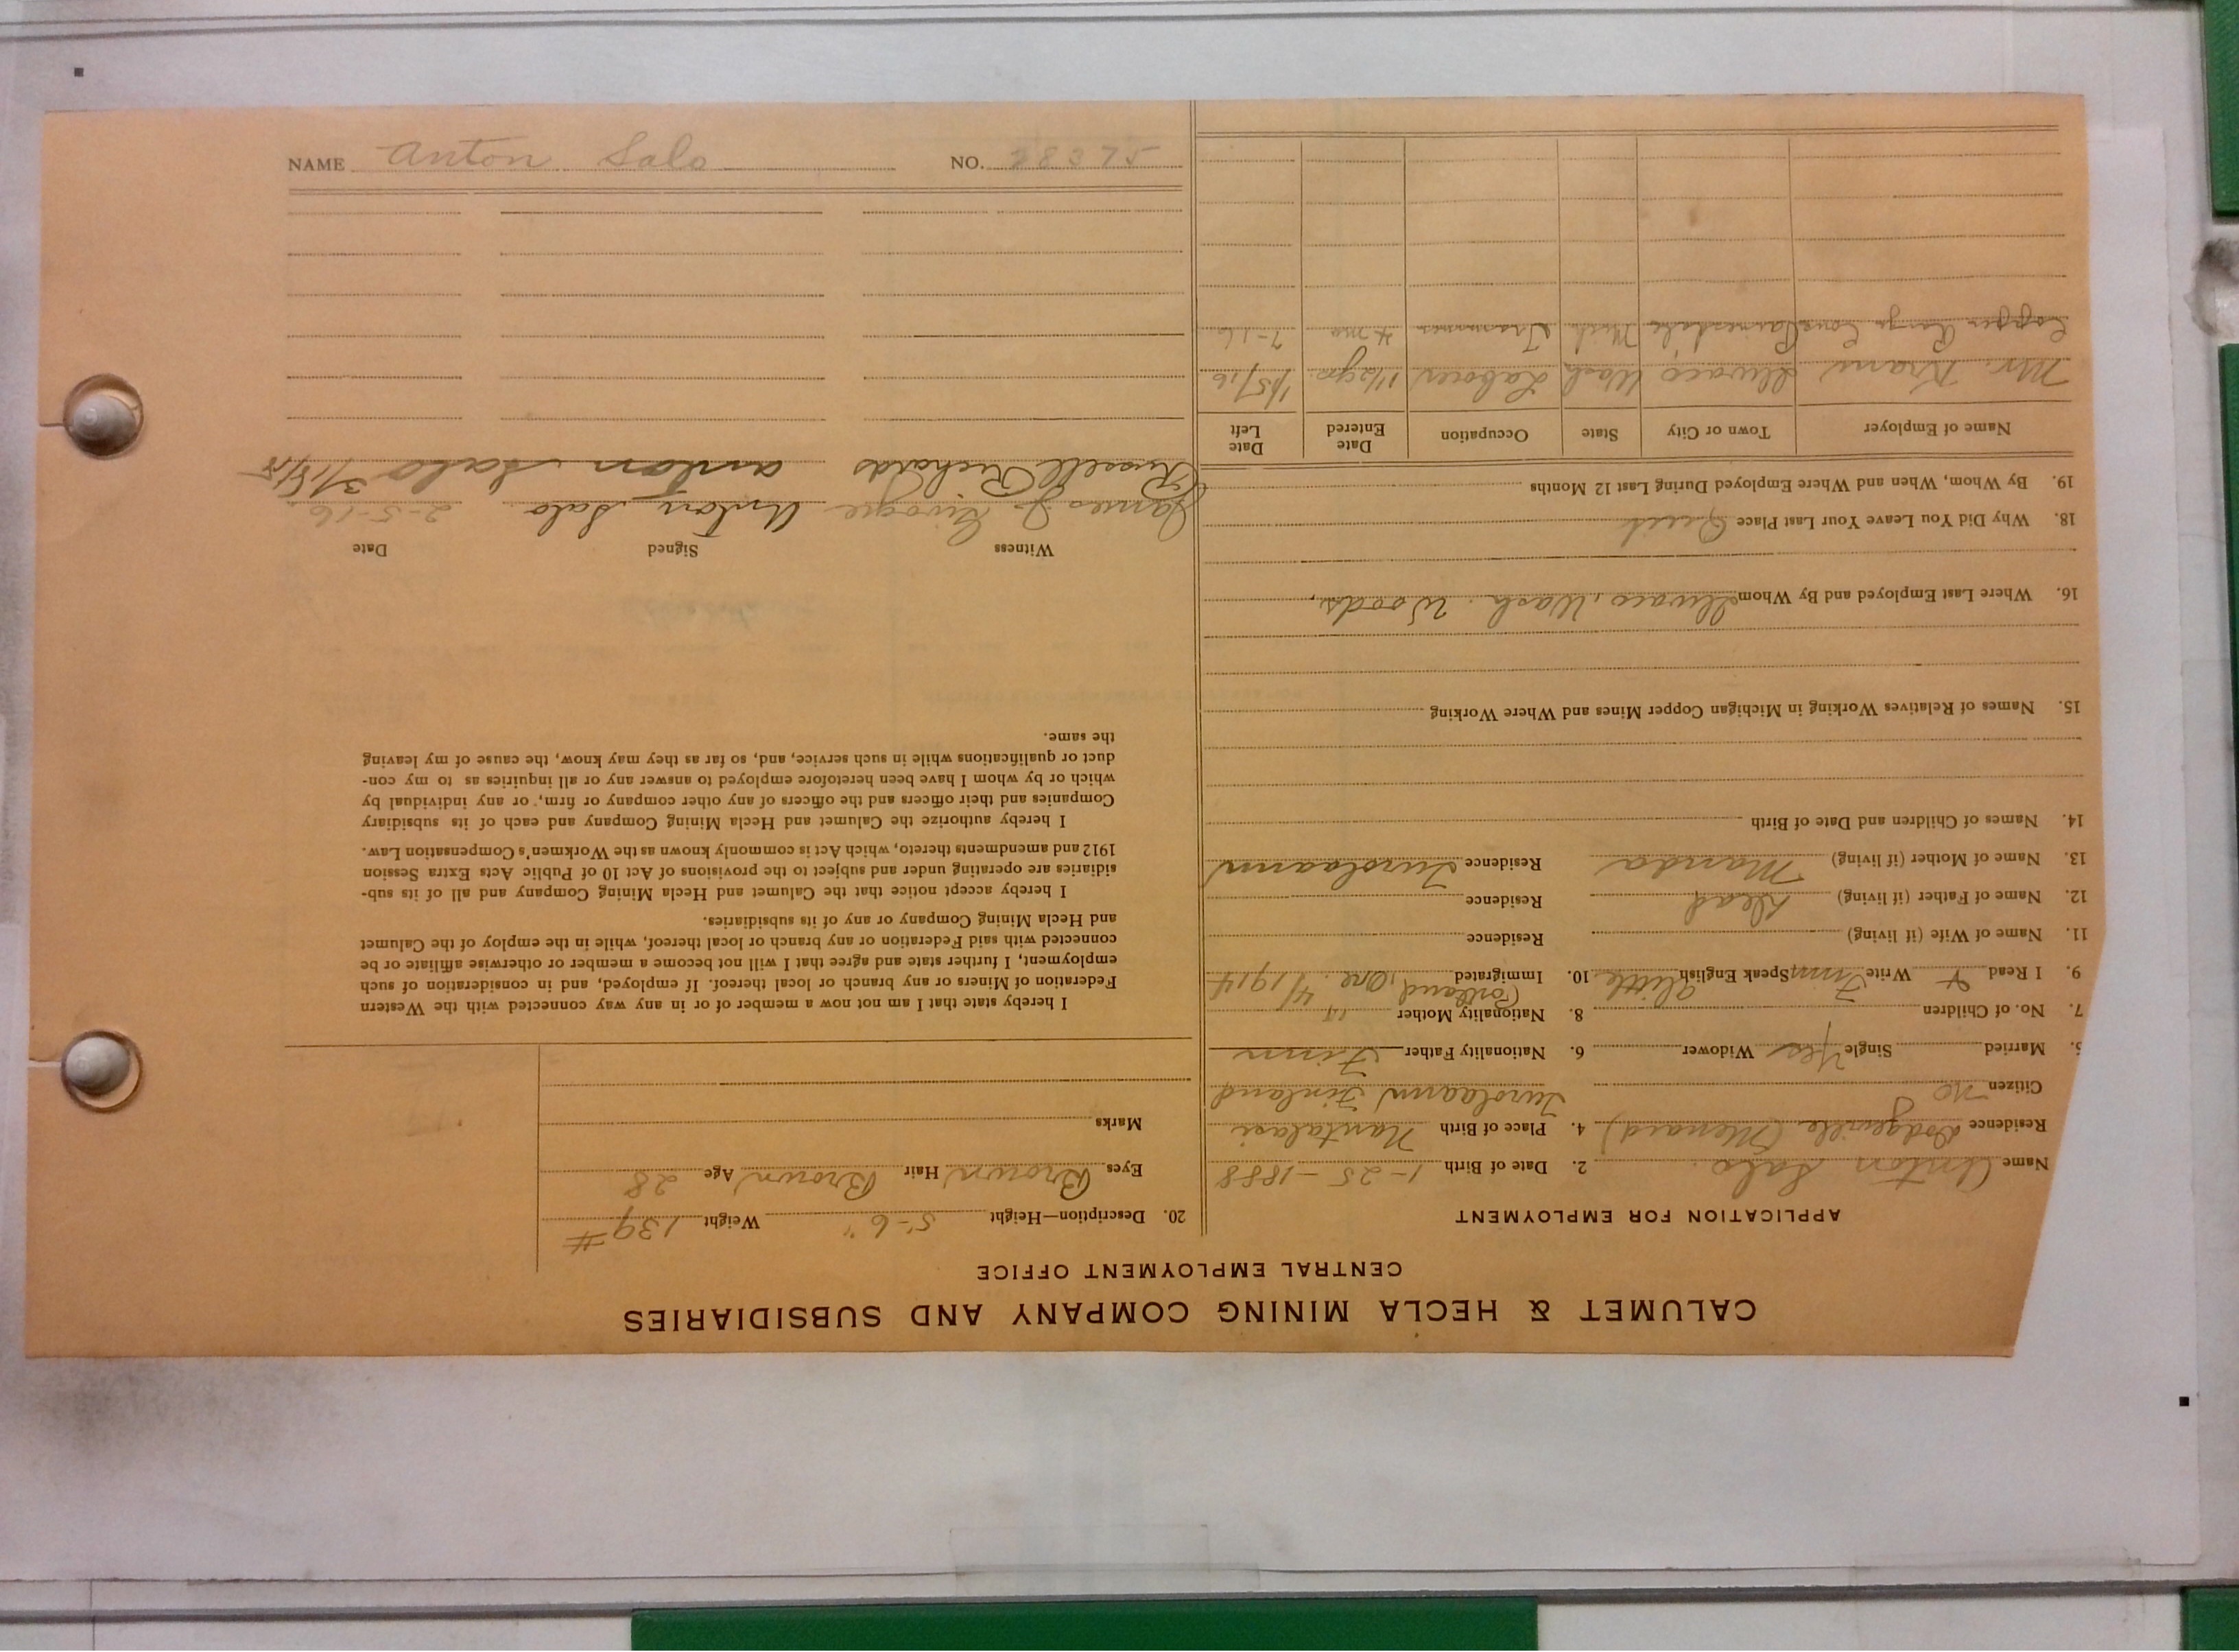 CALUMET & HECLA MINING COMPANY AND SUBSIDIARIES
CENTRAL EMPLOYMENT OFFICE
APPLICATION FOR EMPLOYMENT
Name Anton Salo. 2. Date of Birth 1-25-1888
Residence Dodgeville (Menard) 4. Place of Birth Nantalasi
Citizen no Turolaann Finland
Married Single Yes Widower 6. Nationality Father Finn
7. No. of Children 8. Nationality Mother "
9. I Read + Write Finn Speak English a little 10. Immigrated Portland, Ore. 4/1914
11. Name of Wife (if living) Residence
12. Name of Father (if living) Dead Residence
13. Name of Mother (if living) Manda Residence Turolaann
14. Names of Children and Date of Birth
15. Names of Relatives Working in Michigan Copper Mines and Where Working
16. Where Last Employed and By Whom Ilwaco, Wash. Woods,
18. Why Did You Leave Your Last Place Quit
19. By Whom, When and Where Employed During Last 12 Months
Name of Employer Town or City State Occupation Date Entered Date Left
Mr. Kranu Ilwaco Wash Laborer 1 1/2 yrs. 1/15/16
Copper Range Cons Painesdale Mich Trammer 4 mo 7-16
20. Description—Height 5-6" Weight 139#
Eyes Brown Hair Brown Age 28
Marks
I hereby state that I am not now a member of or in any way connected with the Western
Federation of Miners or any branch or local thereof. If employed, and in consideration of such
employment, I further state and agree that I will not become a member or otherwise affiliate or be
connected with said Federation or any branch or local thereof, while in the employ of the Calumet
and Hecla Mining Company or any of its subsidiaries.
I hereby accept notice that the Calumet and Hecla Mining Company and all of its sub-
sidiaries are operating under and subject to the provisions of Act 10 of Public Acts Extra Session
1912 and amendments thereto, which Act is commonly known as the Workmen's Compensation Law.
I hereby authorize the Calumet and Hecla Mining Company and each of its subsidiary
Companies and their officers and the officers of any other company or firm, or any individual by
which or by whom I have been heretofore employed to answer any or all inquiries as to my con-
duct or qualifications while in such service, and, so far as they may know, the cause of my leaving
the same.
Witness Signed Date
James J. Anton Salo. 2-5-16.
Russell Richards Anton Salo 3/15/18
NAME Anton Salo NO. 28375